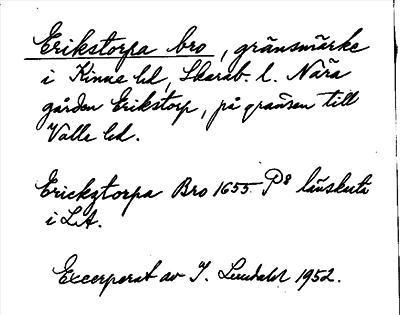 Erikstorpa bro, gränsmärke
i Kinne hd, Skarab. l. Nära
gården Erikstorp, på gränsen till
Valle hd.
Erickztorpa Bro 1655 P8
i LA.
Excerperat av I. Lundahl 1952.